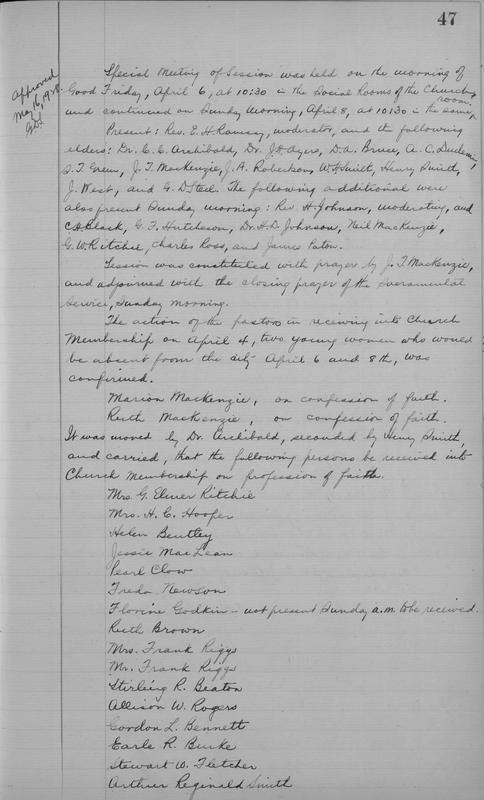 47
Approved
May 16, 1928.
Special Meeting of Session was held on the morning of
Good Friday, April 6, at 10:30 in the Social Rooms of the Church,
and continued on Sunday morning, April 8, at 10:30 in the same room.
Present: Rev. E. H. Ramsay, moderator, and the following
elders: Dr. E. E. Archibald, Dr. J. Ayers, D.A. Bruce, A. C.
S. T. Green, J. T. MacKenzie, J. A. Robertson, W. Smith, Henry Smith,
J. West, and G. D Steel. The following additional were
also present Sunday morning: Rev. H. Johnson, moderating, and
Black, G. F. Hutcheson, Dr. H. D. Johnson, Neil MacKenzie,
G. W. Ritchie, Charles Ross, and James Paton.
Session was constituted with prayer by J. T. MacKenzie,
and adjourned with the closing prayer of the Sacramental
Service, Sunday morning.
The action of the pastors in receiving into Church
Membership on April 4, two young women who would
be absent from the city April 6 and 8th, was
confirmed.
Marion MacKenzie, on confession of faith.
Ruth MacKenzie, on confession of faith.
It was moved by Dr. Archibald, seconded by Henry Smith,
and carried, that the following persons be received into
Church Membership on profession of faith.
Mrs. G. Elmer Ritchie
Mrs. H. C. Hooper
Helen Bentley
Jessie MacLean
Pearl Clow
Freda Newson
Florine Godkin - not present Sunday a.m. to be received.
Ruth Brown
Mrs. Frank Riggs
Mr. Frank Riggs
Stirling R. Beaton
Allison W. Rogers
Gordon L. Bennett
Earle R. Burke
Stewart W. Fletcher
Arthur Reginald Smith